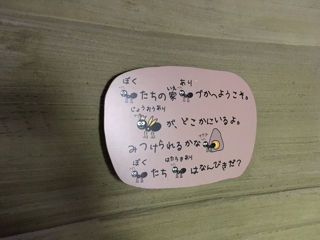 ぼく いえ あり
たちの家 づかへようこそ。
じょおうあり
が、どこかにいるよ。
みつけられるかな
ぼく はたらきあり
たち はなんびきだ?